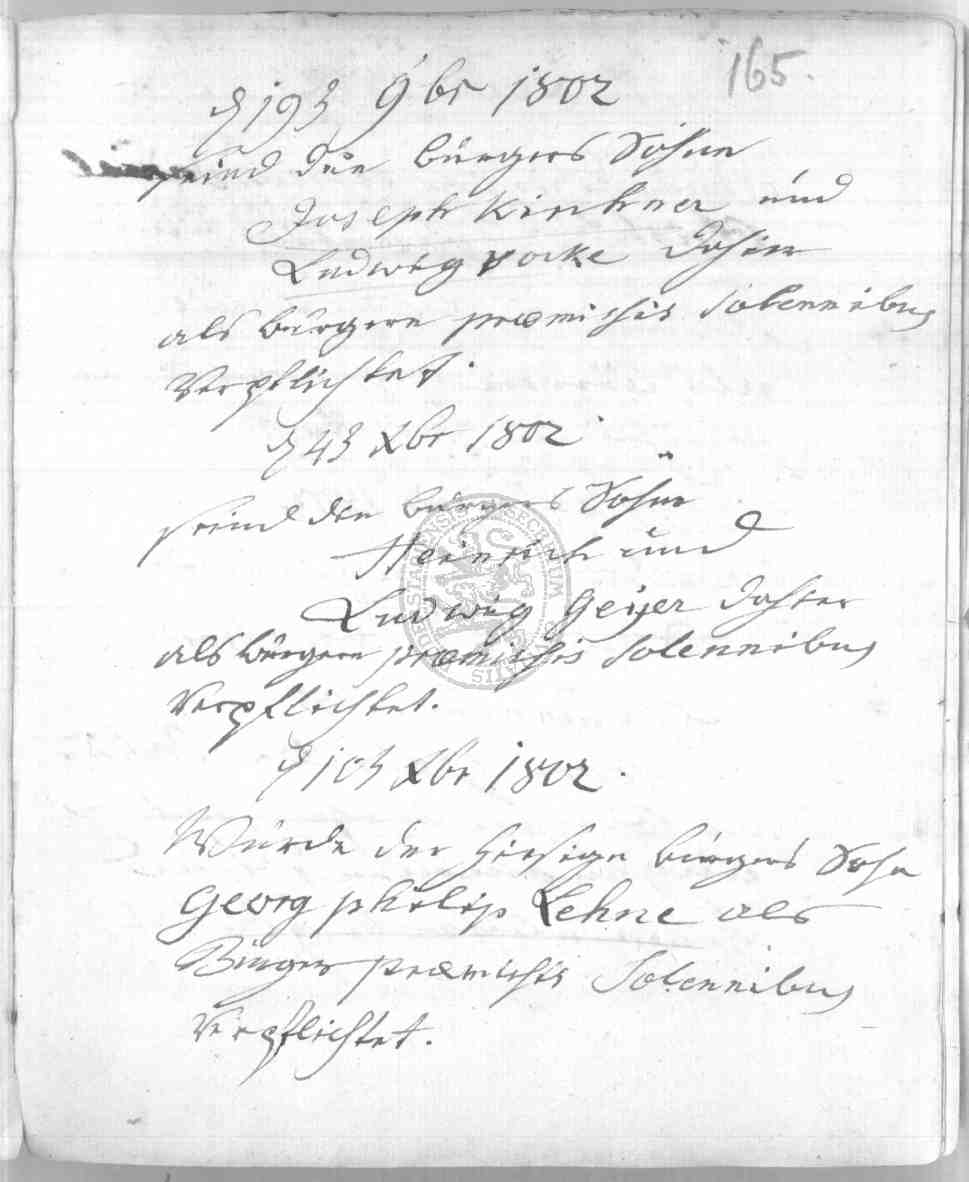 165.
d 19t 9br 1802
seind die bürgers Söhne
Joseph Kirchner und
Ludwig Focke dahier
als bürgere præmissis Solennibus
Verpflichtet.
d 4t Xbr 1802
seind die bürgers Söhne
Heinrich und
Ludwig Geÿer dahier
als bürgere præmissis Solennibus
Verpflichtet.
d 10t Xbr 1802.
Würde der hiesige bürgers Sohn
Georg philip Lehne als
Bürger præmissis Solennibus
Verpflichtet.